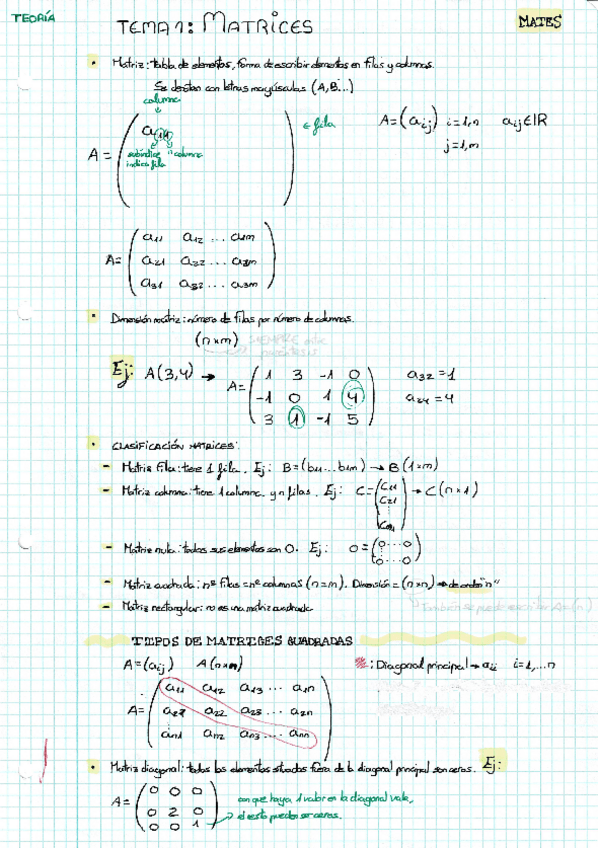 TEORÍA
TEMA 1: MATRICES
MATES
• Matriz: tabla de elementos, forma de escribir elementos en filas y columnas.
Se denotan con letras mayúsculas (A, B...)
columna
← fila
A = ( a
subíndice indica fila
columna
A = (aij) i=1,n aij ∈ IR
j=1,m
A = ( a11 a12 ... a1m
a21 a22 ... a2m
a31 a32 ... a3m )
• Dimensión matriz: número de filas por número de columnas.
(n×m) SIEMPRE entre
paréntesis
Ej: A(3,4) → A = ( 1 3 -1 0
-1 0 1 4
3 1 -1 5 )
a32 = 1
a24 = 4
• CLASIFICACIÓN MATRICES:
- Matriz fila: tiene 1 fila. Ej: B = (b11 ... b1m) → B (1×m)
- Matriz columna: tiene 1 columna y n filas. Ej: C = ( C11 C21 ⋮ Cn1 ) → C (n×1)
- Matriz nula: todos sus elementos son 0. Ej: O = ( 0...0
0...0 )
- Matriz cuadrada: nº filas = nº columnas (n=m). Dimensión = (n×n) → de orden "n"
También se puede escribir An(n)
- Matriz rectangular: no es una matriz cuadrada
TIPOS DE MATRICES CUADRADAS
A = (aij) A(n×n)
: Diagonal principal → aii i=1,...n
A = ( a11 a12 a13 ... a1n
a22 a23 ... a2n
an1 an2 an3 ... ann )
• Matriz diagonal: todos los elementos situados fuera de la diagonal principal son ceros. Ej:
A = ( 0 0 0
0 2 0
0 0 1 )
con que haya 1 valor en la diagonal vale,
→ el resto pueden ser ceros.